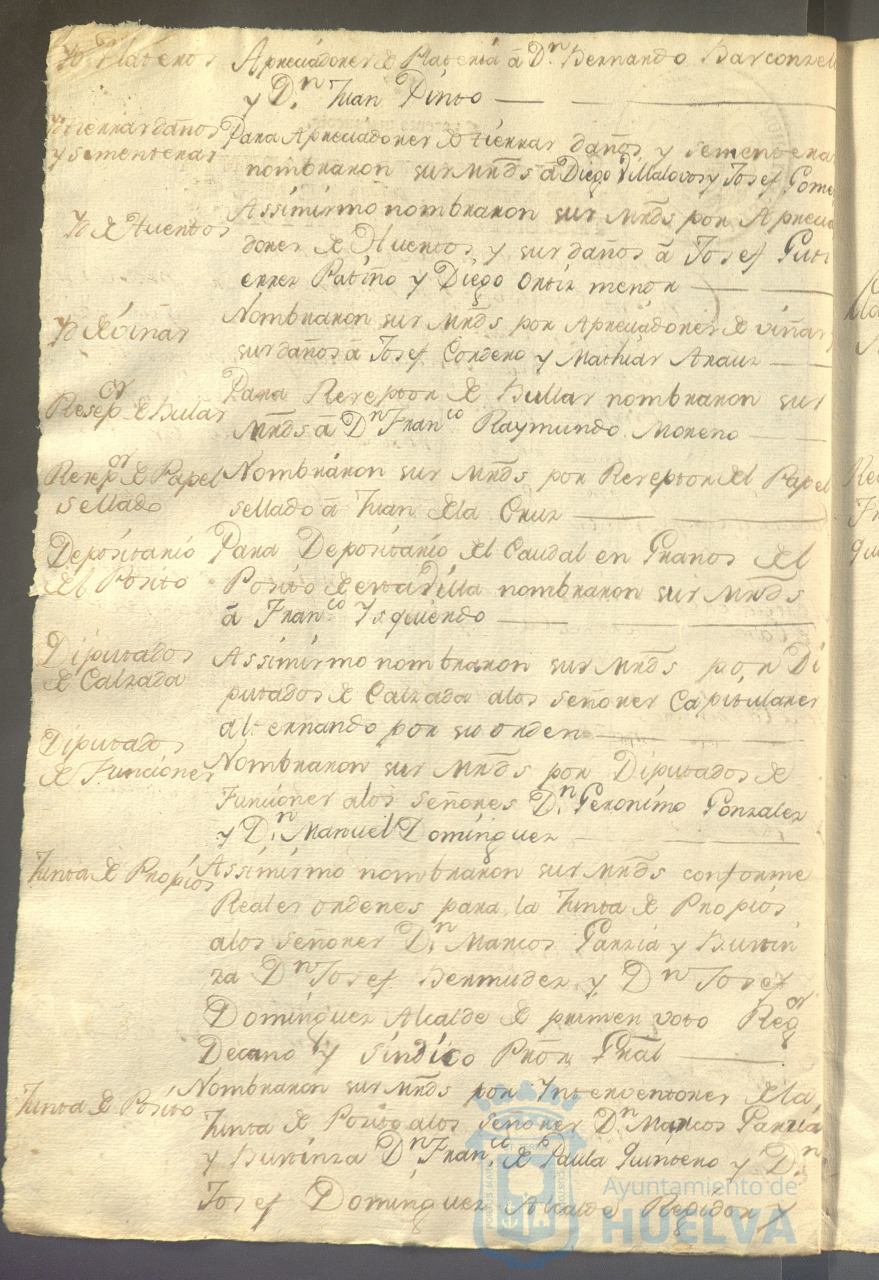 Yd Plateros
Apreciadores de Plateria â Dn. Bernando Barconzel
y Dn. Juan Pinto
Yd tierras daños
y sementeras
Para Apreciadores de tierras daños, y sementera
nombraron sus Mrds â Diego Villalovos y Josef Gome
Yd de Huertos
Assimismo nombraron sus Mrds por Aprecia
dores de Huertos, y sus daños â Josef Guti
errez Patiño y Diego Ortiz menor
Yd de viñas
Nombraron sus Mrds por Apreciadores de viñas
sus daños â Josef Cordero y Mathias Arauz
Resepor de Bulas
Para Rezeptor de Bullas nombraron sus
Mrds â Dn Franco Raymundo Moreno
Rezepor de Papel
sellado
Nombraron sus Mrds por Rezeptor del Papel
sellado â Juan de la Cruz
Depositario
del Posito
Para Depositario del Caudal en Granos del
Posito de esta Villa nombraron sus Mrds
â Franco Ysquierdo
Diputados
de Calzada
Assimismo nombraron sus Mrds por Di
putados de Calzada alos señores Capitulares
alternando por su orden
Diputados
de Funciones
Nombraron sus Mrds por Diputados de
Funciones alos señores Dn. Geronimo Gonzalez
y Dn. Manuel Dominguez
Junta de Propios
Assimismo nombraron sus Mrds conforme
Reales ordenes para la Junta de Propios
alos señores Dn. Marcos Garzia y Bustin
za Dn Josef Bermudez y Dn Josef
Dominguez Alcalde de primer voto Regor
Decano y sindico Pror Gral
Junta de Posito
Nombraron sus Mrds por Interventores de la
Junta de Posito alos señores Dn. Marcos Garzia
y Bustinza Dn Franco de Paula Quintero y Dn.
Josef Dominguez Alcalde Regidor y
Ayuntamiento de
HUELVA